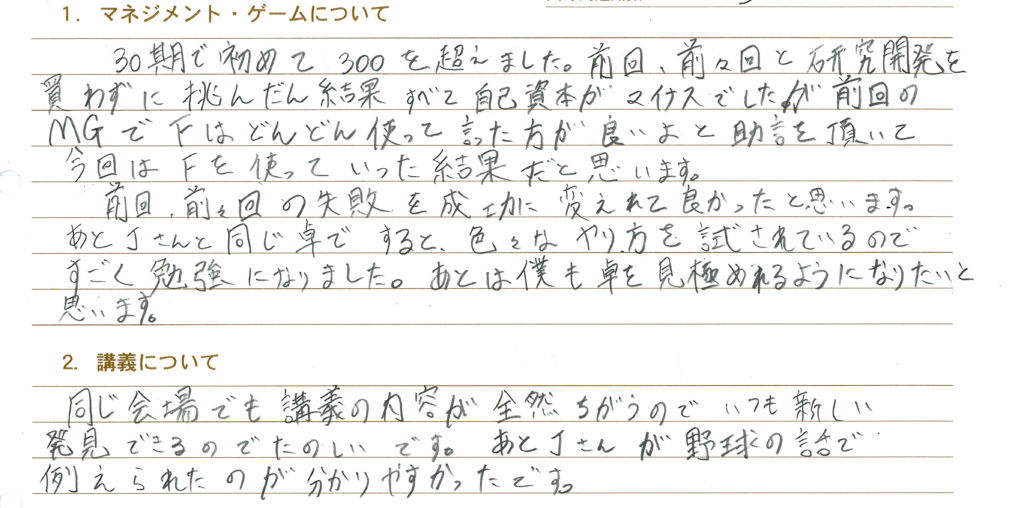 1. マネジメント・ゲームについて
30期で初めて300を超えました。前回、前々回と研究開発を
買わずに挑んだん結果すべて自己資本がマイナスでしたが前回の
MGでFはどんどん使って言った方が良いよと助言を頂いて
今回はFを使っていった結果だと思います。
前回、前々回の失敗を成功に変えれて良かったと思います。
あとJさんと同じ卓ですると、色々なやり方を試されているので
すごく勉強になりました。あとは僕も卓を見極めれるようになりたいと
思います。
2. 講義について
同じ会場でも講義の内容が全然ちがうのでいつも新しい
発見できるのでたのしいです。あとJさんが野球の話で
例えられたのが分かりやすかったです。